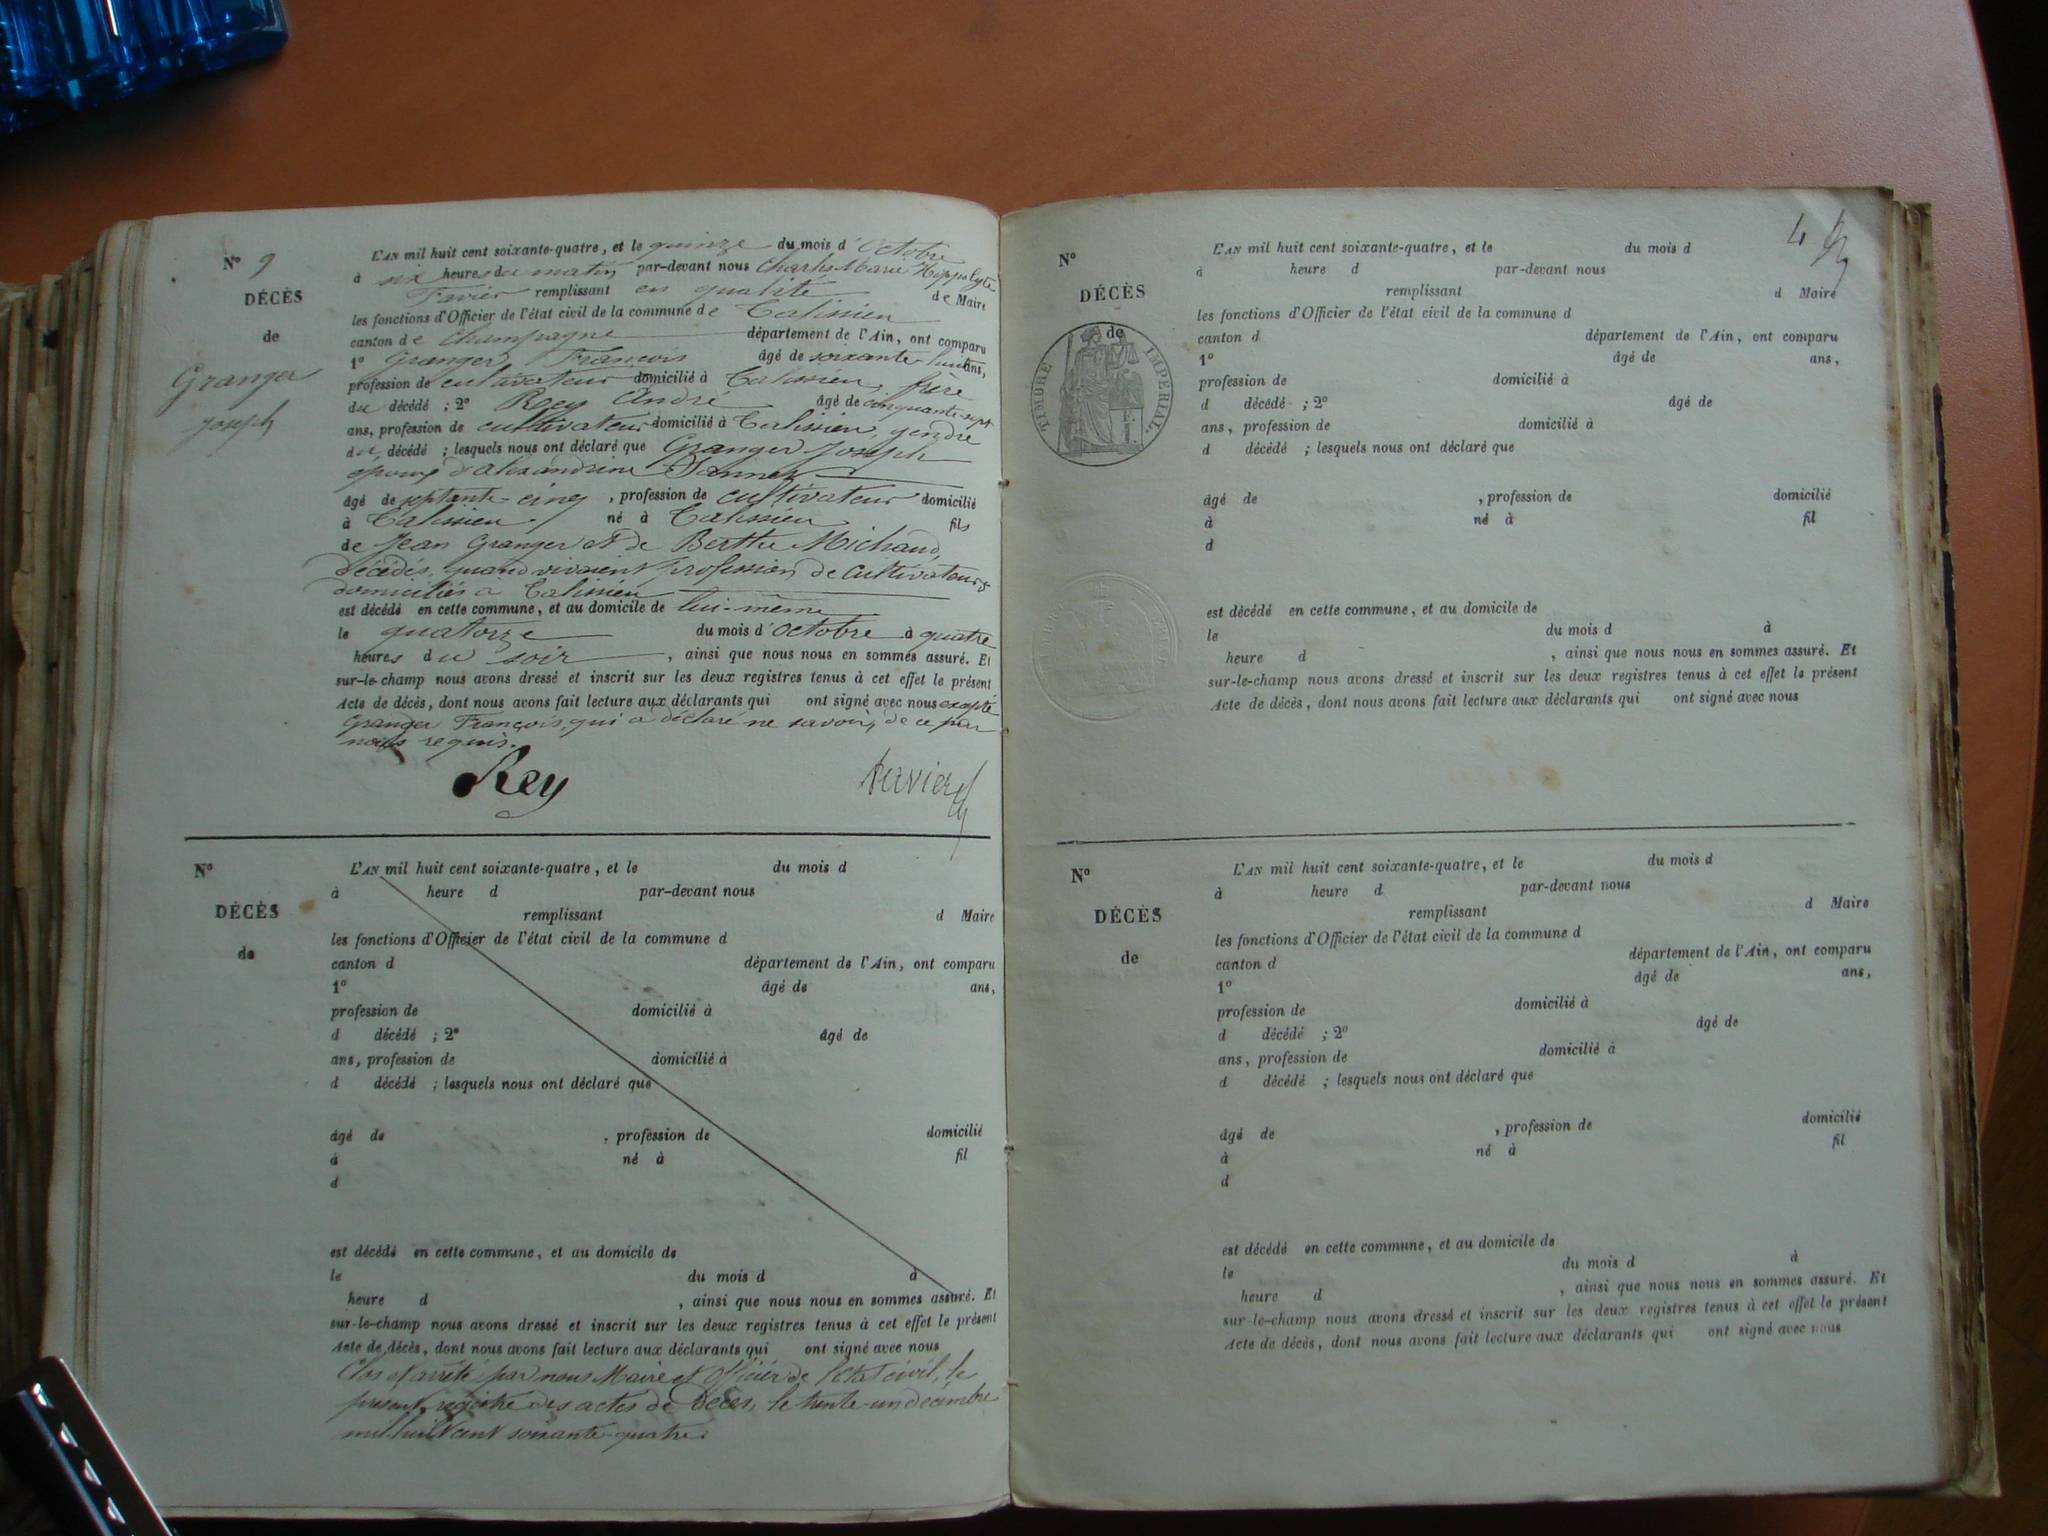 N° 9
DÉCÈS
de
Granger
Joseph
L'AN mil huit cent soixante-quatre, et le quinze du mois d'Octobre
à six heures du matin par-devant nous Charles Marie Hippolyte
Favier remplissant en qualité de Maire
les fonctions d'Officier de l'état civil de la commune de Talissieu
canton de Champagne département de l'Ain, ont comparu
1° Granger François âgé de soixante-huit ans,
profession de cultivateur domicilié à Talissieu, frère
du décédé ; 2° Rey André âgé de cinquante-sept
ans, profession de cultivateur domicilié à Talissieu, gendre
du décédé ; lesquels nous ont déclaré que Granger Joseph
époux d'alexandrine
âgé de septante-cinq , profession de cultivateur domicilié
à Talissieu né à Talissieu fils
de Jean Granger et de Berthe Michaud,
décédés, quand vivaient profession de cultivateurs
domiciliés à Talissieu
est décédé en cette commune, et au domicile de lui-même
le quatorze du mois d'octobre à quatre
heures du soir , ainsi que nous nous en sommes assuré. Et
sur-le-champ nous avons dressé et inscrit sur les deux registres tenus à cet effet le présent
Acte de décès, dont nous avons fait lecture aux déclarants qui ont signé avec nous excepté
Granger François, qui a déclaré ne savoir, de ce par
nous requis.
Rey Favier
N°
DÉCÈS
de
L'AN mil huit cent soixante-quatre, et le du mois d
à heure d par-devant nous
remplissant d Maire
les fonctions d'Officier de l'état civil de la commune d
canton d département de l'Ain, ont comparu
1° âgé de ans,
profession de domicilié à
d décédé ; 2° âgé de
ans, profession de domicilié à
d décédé ; lesquels nous ont déclaré que
âgé de , profession de domicilié
à né à fil
d
est décédé en cette commune, et au domicile de
le du mois d à
heure d , ainsi que nous nous en sommes assuré. Et
sur-le-champ nous avons dressé et inscrit sur les deux registres tenus à cet effet le présent
Acte de décès, dont nous avons fait lecture aux déclarants qui ont signé avec nous
Clos et arrêté par nous Maire et Officier de l'Etat civil, le
présent registre des actes de Décès, le trente-un décembre
mil huit cent soixante-quatre.
4
N°
DÉCÈS
de
TIMBRE IMPERIAL
L'AN mil huit cent soixante-quatre, et le du mois d
à heure d par-devant nous
remplissant d Maire
les fonctions d'Officier de l'état civil de la commune d
canton d département de l'Ain, ont comparu
1° âgé de ans,
profession de domicilié à
d décédé ; 2° âgé de
ans, profession de domicilié à
d décédé ; lesquels nous ont déclaré que
âgé de , profession de domicilié
à né à fil
d
est décédé en cette commune, et au domicile de
le du mois d à
heure d , ainsi que nous nous en sommes assuré. Et
sur-le-champ nous avons dressé et inscrit sur les deux registres tenus à cet effet le présent
Acte de décès, dont nous avons fait lecture aux déclarants qui ont signé avec nous
N°
DÉCÈS
de
L'AN mil huit cent soixante-quatre, et le du mois d
à heure d par-devant nous
remplissant d Maire
les fonctions d'Officier de l'état civil de la commune d
canton d département de l'Ain, ont comparu
1° âgé de ans,
profession de domicilié à
d décédé ; 2° âgé de
ans, profession de domicilié à
d décédé ; lesquels nous ont déclaré que
âgé de , profession de domicilié
à né à fil
d
est décédé en cette commune, et au domicile de
le du mois d à
heure d , ainsi que nous nous en sommes assuré. Et
sur-le-champ nous avons dressé et inscrit sur les deux registres tenus à cet effet le présent
Acte de décès, dont nous avons fait lecture aux déclarants qui ont signé avec nous